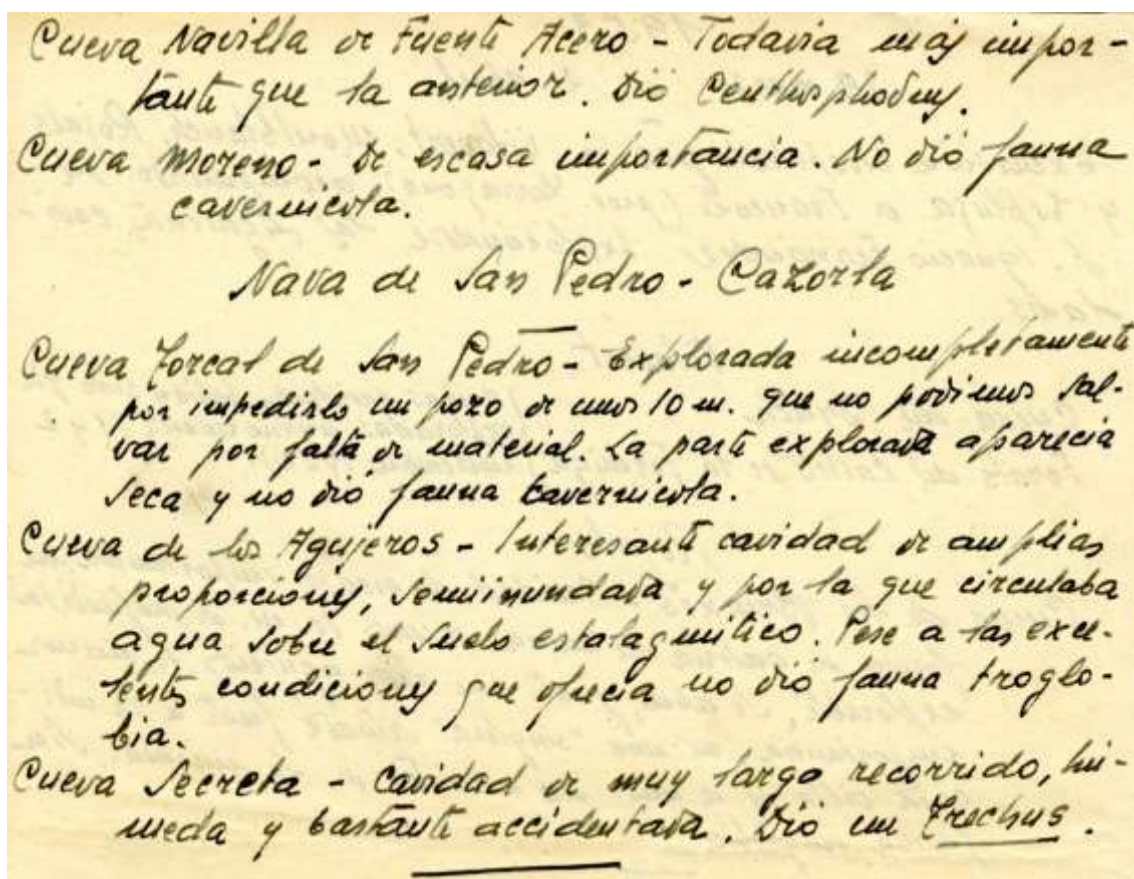 Cueva Navilla de Fuente Acero - Todavia más impor-
tante que la anterior. Dió Ceuthosphodrus.
Cueva Moreno - De escasa importancia. No dió fauna
cavernicola.
Nava de San Pedro - Cazorla
Cueva Torcal de San Pedro - Explorada incompletamente
por impedirlo un pozo de unos 10 m. que no pudimos sal-
var por falta de material. La parte explorada aparecia
seca y no dió fauna cavernicola.
Cueva de los Agujeros - Interesante cavidad de amplias
proporciones, semiinundada y por la que circulaba
agua sobre el suelo estalagmitico. Pese a las exce-
lentes condiciones que ofrecia no dió fauna troglo-
bia.
Cueva Secreta - Cavidad de muy largo recorrido, hú-
meda y bastante accidentada. Dió un Trechus.